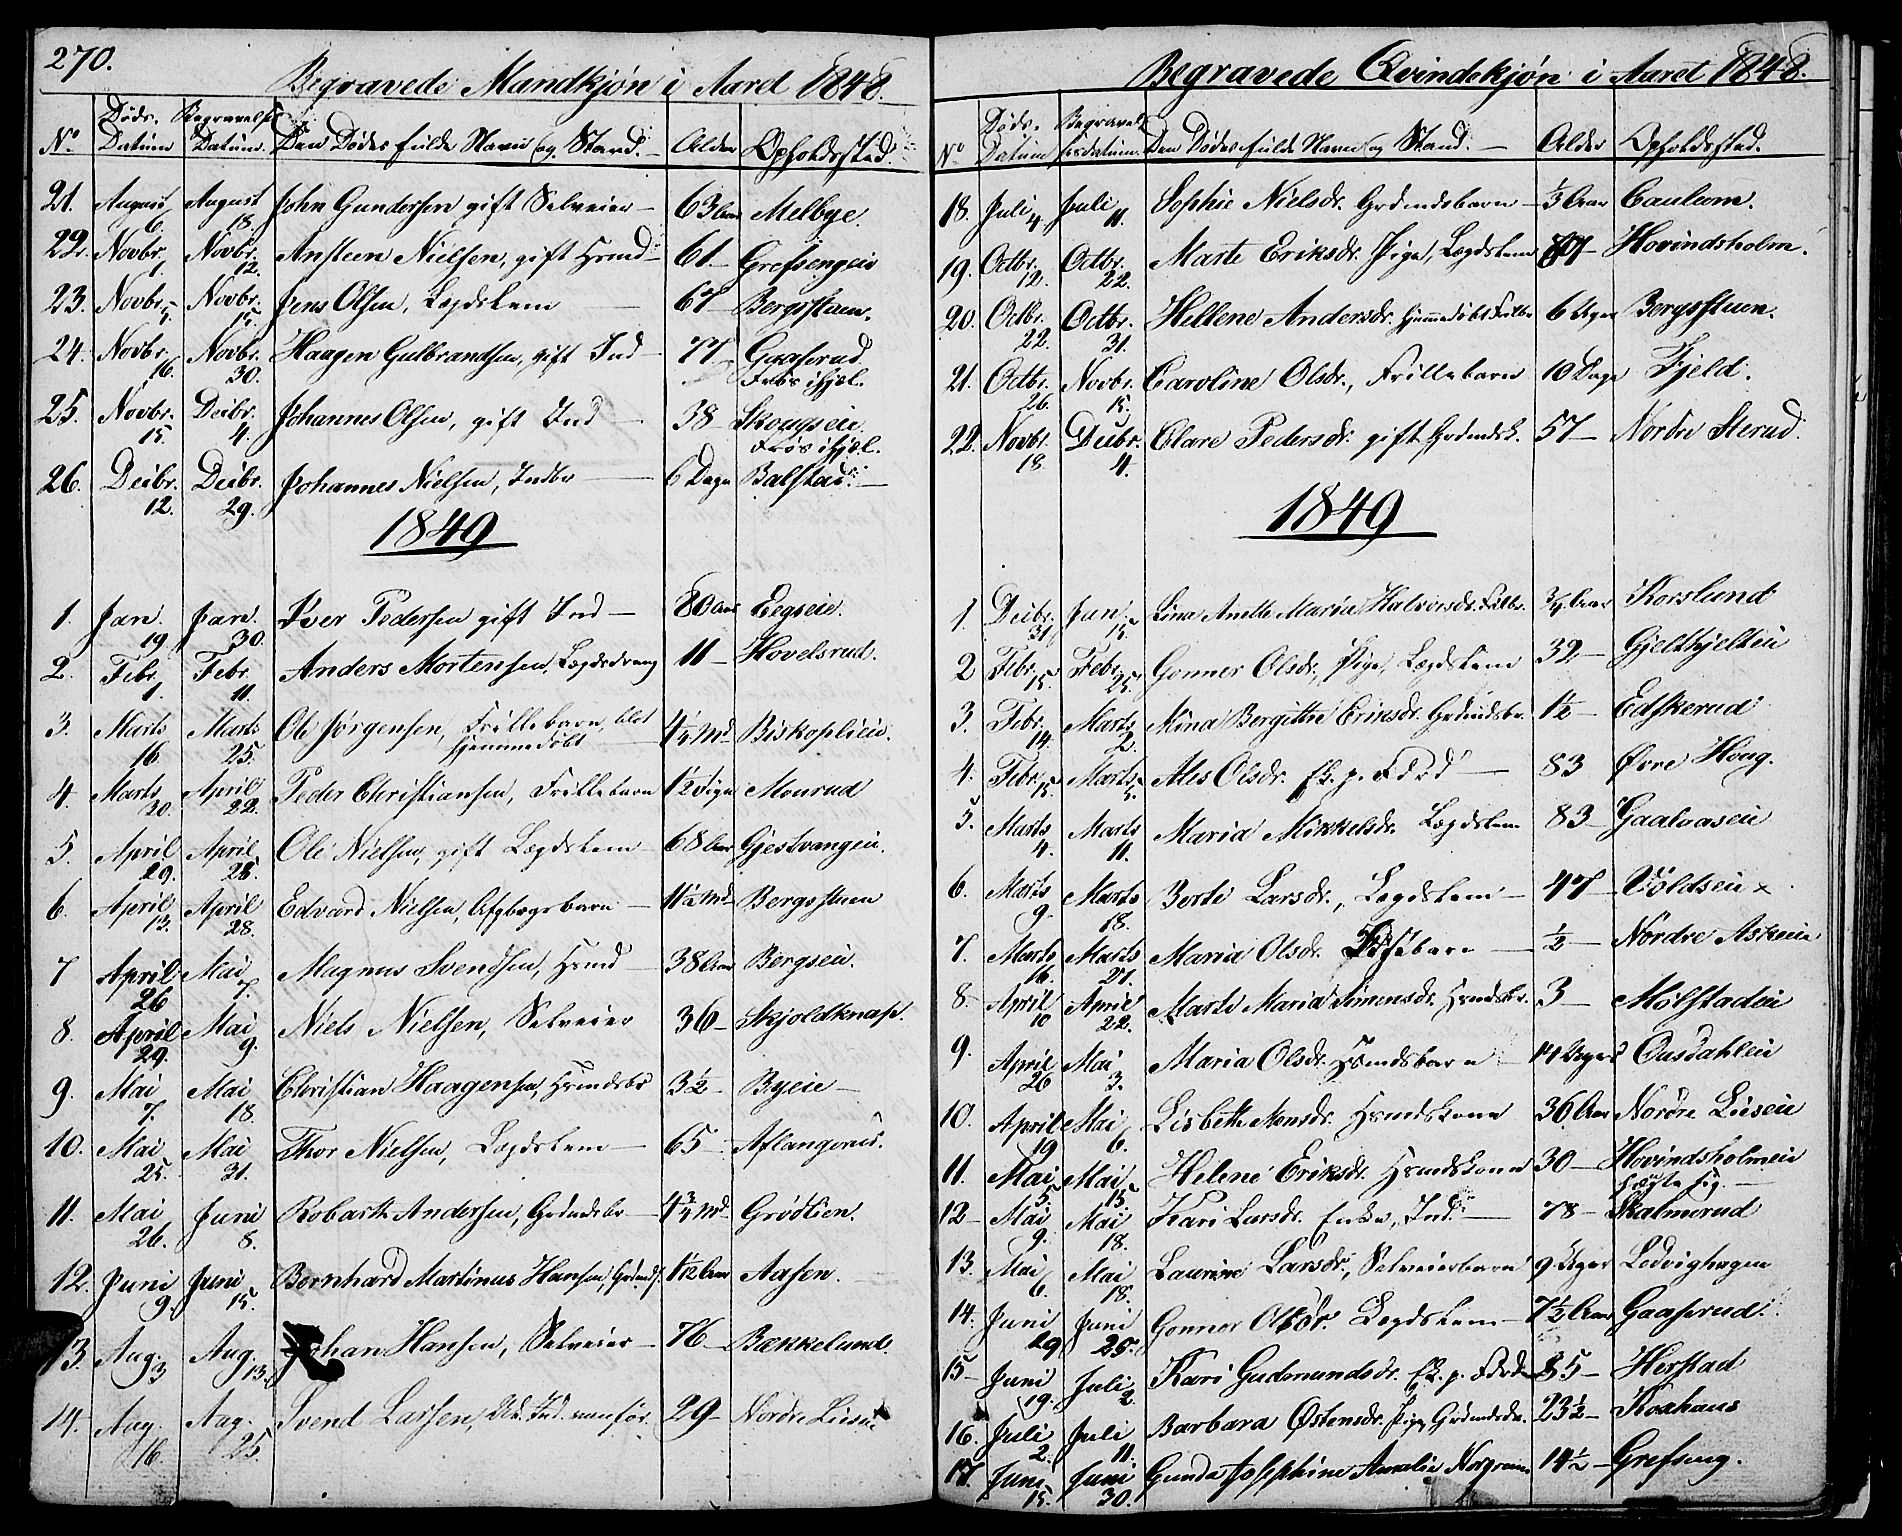 270.
Begravede Mandkjøn i Aaret 1848.
No Døds-Datum Begravelses Datum. Den Dødes fulde Navn og Stand. Alder Opholdssted.
21. August 6. August 18. John Gundersen gift Selveier 63 Aar Melbye.
22. Novbr. 1. Novbr. 12. Ansteen Nielsen, gift Hsmd 61 Grefsengeie
23. Novbr. 5. Novbr. 15. Jens Olsen, Lægdslem 67 Bergsstuen.
24. Novbr. 16. Novbr. 30. Haagen Gulbrandsen, gift Ind 77 Gaaserud.
Frøs ihjel.
25. Novbr. 15. Decbr. 4. Johannes Olsen, gift Ind 38 Skougseie.
Frøs ihjel.
26. Decbr. 12. Decbr. 29. Johannes Nielsen, Indbr 6 Dage Balstad.
1849
1. Jan. 19 Jan. 30. Iver Pedersen gift Ind 80 Aar Eegseie.
2. Febr. 1. Febr. 11. Anders Mortensen, Lægdsdreng 11 Hovelsrud.
3. Marts 16. Marts 25. Ole Jørgensen, Frillebarn, blot 4 1/4 Md Biskoplien.
hjemmedøbt
4. Marts 20. April 22. Peder Christiansen, Frillebarn 1 1/2 Time Monrud
5. April 29. April 28. Ole Nielsen, gift Lægdslem 68 Aar Gjestvangeie.
6. April 13. April 28. Edvard Nielsen, 11 1/2 Md Bergsstuen
7 April 26 Mai 7. Magnus Svendsen, Hsmd 38 Aar Bergseie
8. April 29. Mai 9. Niels Nielsen, Selveier 36 Skjoldknap.
9. Mai 7. Mai 18. Christian Haagensen, Hsmdsbr 3 1/2 Byeie
10. Mai 25. Mai 31. Thor Nielsen, Lægdslem 65 Aflangerud.
11. Mai 26. Juni 8. Robarth Andersen, Grdmdsbr 4 3/4 Md. Grødlien.
12. Juni 9 Juni 15. Bernhard Martinus Hansen, 1 1/2 Aar Aasen.
13. Aug. 3 Aug. 13. Johan Hansen, Selveier 76 Bækkelund.
14. Aug. 16. Aug. 25. Svend Larsen, Ind. vanfør. 29 Nordre Lieseie
Begravede Qvindekjøn i Aaret 1848.
No Døds-Datum Begravelsesdatum. Den Dødes fulde Navn og Stand. Alder Opholdssted.
18. Juli 4. Juli 11. Sophie Nielsdr. Grdmdsbarn 1/3 Aar Caulum.
19. Octbr. 12. Octbr. 22. Marte Eriksdr. Pige, Lægdslem 87 Hovindsholm.
20. Octbr. 22. Octbr. 31. Hellene Andersdr. hjemmedøbt Frillebr 6 Uger Bergsstuen.
21. Octbr. 26. Novbr. 15. Caroline Olsdr., Frillebarn 10 Dage Fjeld.
22. Novbr. 18. Decbr. 4. Clare Pedersdr. gift Grdmdsk. 57 Nordre Sterud.
1849
1. Decbr. 31. Jan. 15. Lina Anette Maria Halvorsdr. Frille. 3/4 Aar Korslund
2 Febr. 15. Febr. 25. Gonner Olsdr., Pige, Lægdslem 32 Gjelthjelteie
3. Febr. 14. Marts 2. Mina Bergitte Eriksdr. Grdmdsbr. 1 1/2 Edskerud
4. Febr. 15. Marts 5. Ales Olsdr. Ek. p. Fdrd 83 Øvre Houg.
5. Marts 4. Marts 11. Maria Mikkelsdr. Lægdslem 83 Gaalaaseie
6. Marts 9. Marts 18. Berte Larsdr., Lægdslem 47 Voldseie x
7. Marts 16. Marts 27. Maria Olsdr. 1/2 Nordre Askeeie
8. April 10 April 22. Marte Maria Simensdr. Hsmdsbr. 3 Molstadeie
9. April 26 Mai 3. Maria Olsdr. Hsmdsbarn 14 Uger Ousdahleie
10. April 19 Mai 6. Lisbeth Hsmdskone 36 Aar Nordre Lieseie
11. Mai 5. Mai 15. Helene Eriksdr. Hsmdskone 30 Hovindsholmeie
hængte sig.
12 Mai 9. Mai 18. Kari Larsdr. Enke, Ind. 78 Skalmerud
13. Mai 6. Mai 18. Laurine Larsdr., Selveierbarn 9 Uger Ledvighagen
14. Juni 19 Juni 25. Gonner Olsdr. Lægdslem 7 1/2 Aar Gaaserud.
15 Juni 19. Juli 2. Kari Gudmundsdr. Ek. p. Fdrd 85 Herstad
16. Juli 2. Juli 11. Barbara Østensdr. Pige, Grdmdsdr. 23 1/2 Koxhaus
17. Juni 15. Juni 30. Gunda Josephine Amalie Norgreen 14 1/2 Grefseng.